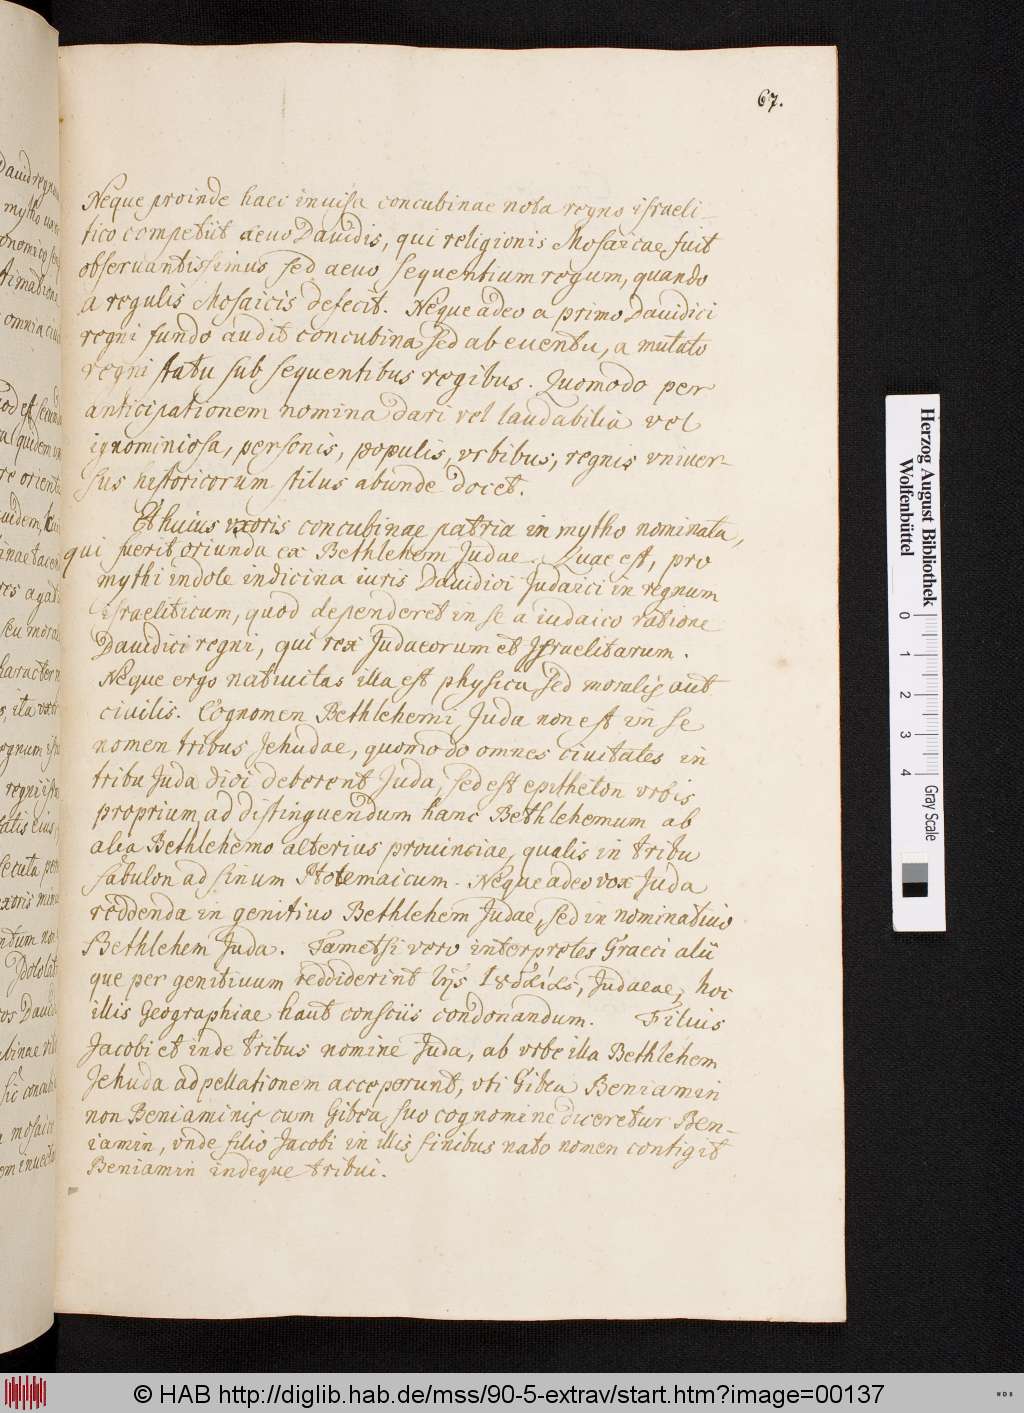 67.
Neque proinde haec inuisa concubinae nota regno israeli-
tico competiit aeuo Dauidis, qui religionis Mosaicae fuit
obseruantissimus sed aeuo sequentium regum, quando
a regulis Mosaicis defecit. Neque adeo a primo Dauidici
regni fundo audit concubina sed ab euentu, a mutato
regni statu sub sequentibus regibus. Quomodo per
anticipationem nomina dari vel laudabilia vel
ignominiosa, personis, populis, vrbibus, regnis vniuer-
sus historicorum stilus abunde docet.
Et huius vxoris concubinae patria in mytho nominata,
qui fuerit oriunda ex Bethlehem Judae. Quae est, pro
mythi indole indicina iuris Dauidici Judaici in regnum
israeliticum, quod dependeret in se a iudaico ratione
Dauidici regni, qui rex Judaeorum et Israelitarum.
Neque ergo natiuitas illa est physica sed moralis aut
ciuilis. Cognomen Bethlehemi Juda non est in se
nomen tribus Jehudae, quomodo omnes ciuitates in
tribu Juda dici deberent Juda, sed est epitheton vrbis
proprium ad distinguendum hanc Bethlehemum ab
alia Bethlehemo alterius prouinciae, qualis in tribu
Sabulon ad sinum Ptolemaicum. Neque adeo vox Juda
reddenda in genitiuo Bethlehem Judae, sed in nominatiuo
Bethlehem Juda. Tametsi vero interpretes Graeci alii
que per genitiuum reddiderint Judaeae, hoc
illis Geographiae haut consciis condonandum. Filius
Jacobi et inde tribus nomine Juda, ab vrbe illa Bethlehem
Jehuda adpellationem acceperunt, vti Gibea Beniamin
non Beniaminis cum Gibea suo cognomine diceretur Ben-
iamin, vnde filio Jacobi in illis finibus nato nomen contigit
Beniamin indeque tribui.
Herzog August Bibliothek
Wolfenbüttel
0 1 2 3 4
Gray Scale
© HAB http://diglib.hab.de/mss/90-5-extrav/start.htm?image=00137